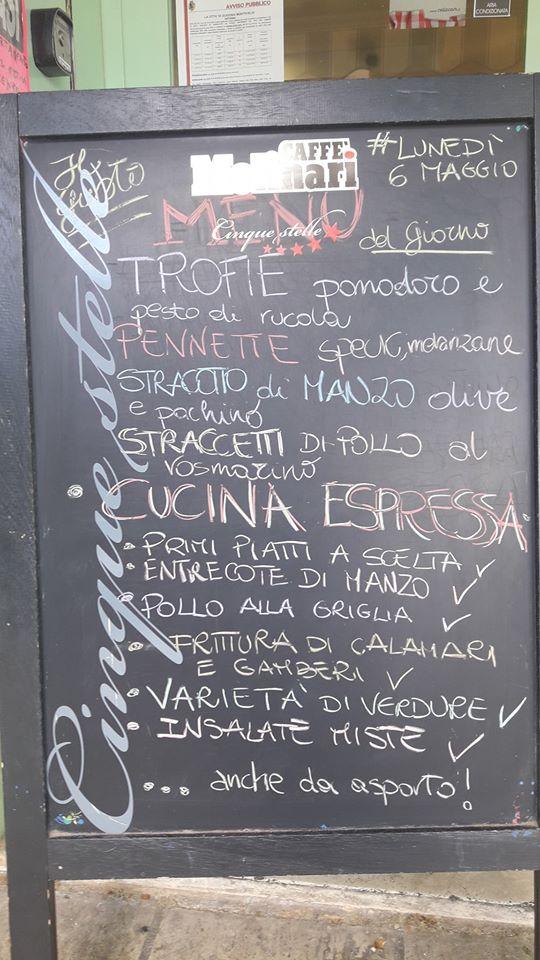 AVVISO PUBBLICO
ARIA
CONDIZIONATA
Il
giusto
CAFFÈ
Molinari
Cinque stelle
#LUNEDÌ
6 MAGGIO
MENU
del Giorno
TROFIE pomodoro e
pesto di rucola
PENNETTE speck, melanzane
STRACOTTO di MANZO olive
e pachino
STRACCETTI DI POLLO al
rosmarino
• CUCINA ESPRESSA
• PRIMI PIATTI A SCELTA ✓
• ENTRECOTE DI MANZO ✓
• POLLO ALLA GRIGLIA ✓
• FRITTURA DI CALAMARI
E GAMBERI ✓
• VARIETA' DI VERDURE ✓
• INSALATE MISTE ✓
... anche da asporto!
Cinque stelle